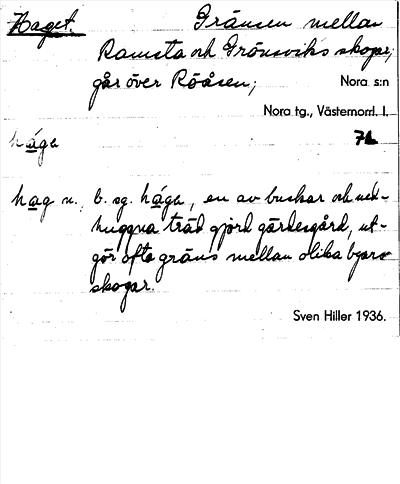 Haget. Gränsen mellan
Ramsta och Grönsviks skogar,
går över Rööåsen; Nora s:n
Nora tg., Västernorrl. l.
håga 71
hag n., b. sg. håga, en av buskar och ned-
huggna träd gjord gärdesgård, ut-
gör ofta gräns mellan olika byars
skogar.
Sven Hiller 1936.